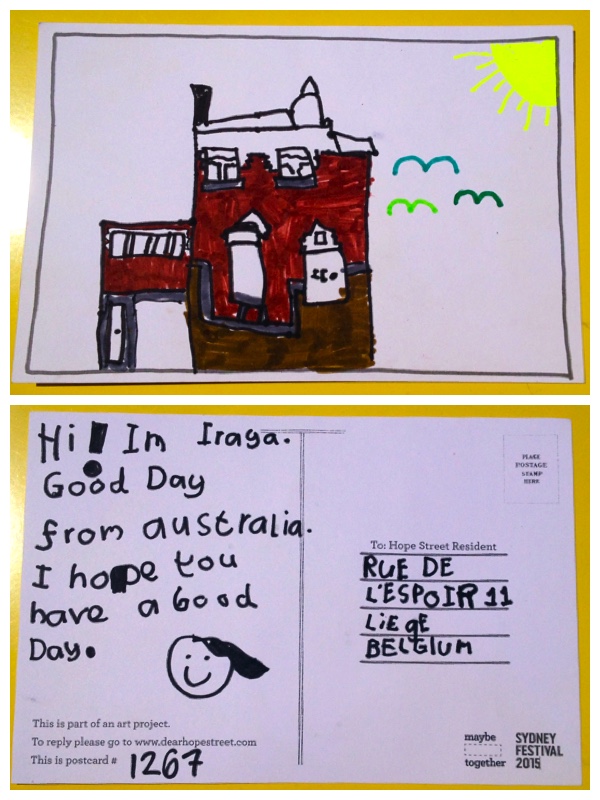 Hi! Im Iraga.
Good Day
from australia.
I hope you
have a Good
Day.
This is part of an art project.
To reply please go to www.dearhopestreet.com
This is postcard # 1267
PLACE
POSTAGE
STAMP
HERE
To: Hope Street Resident
RUE DE
L'ESPOIR 11
LiEgE
BELGIUM
maybe
together
SYDNEY
FESTIVAL
2015